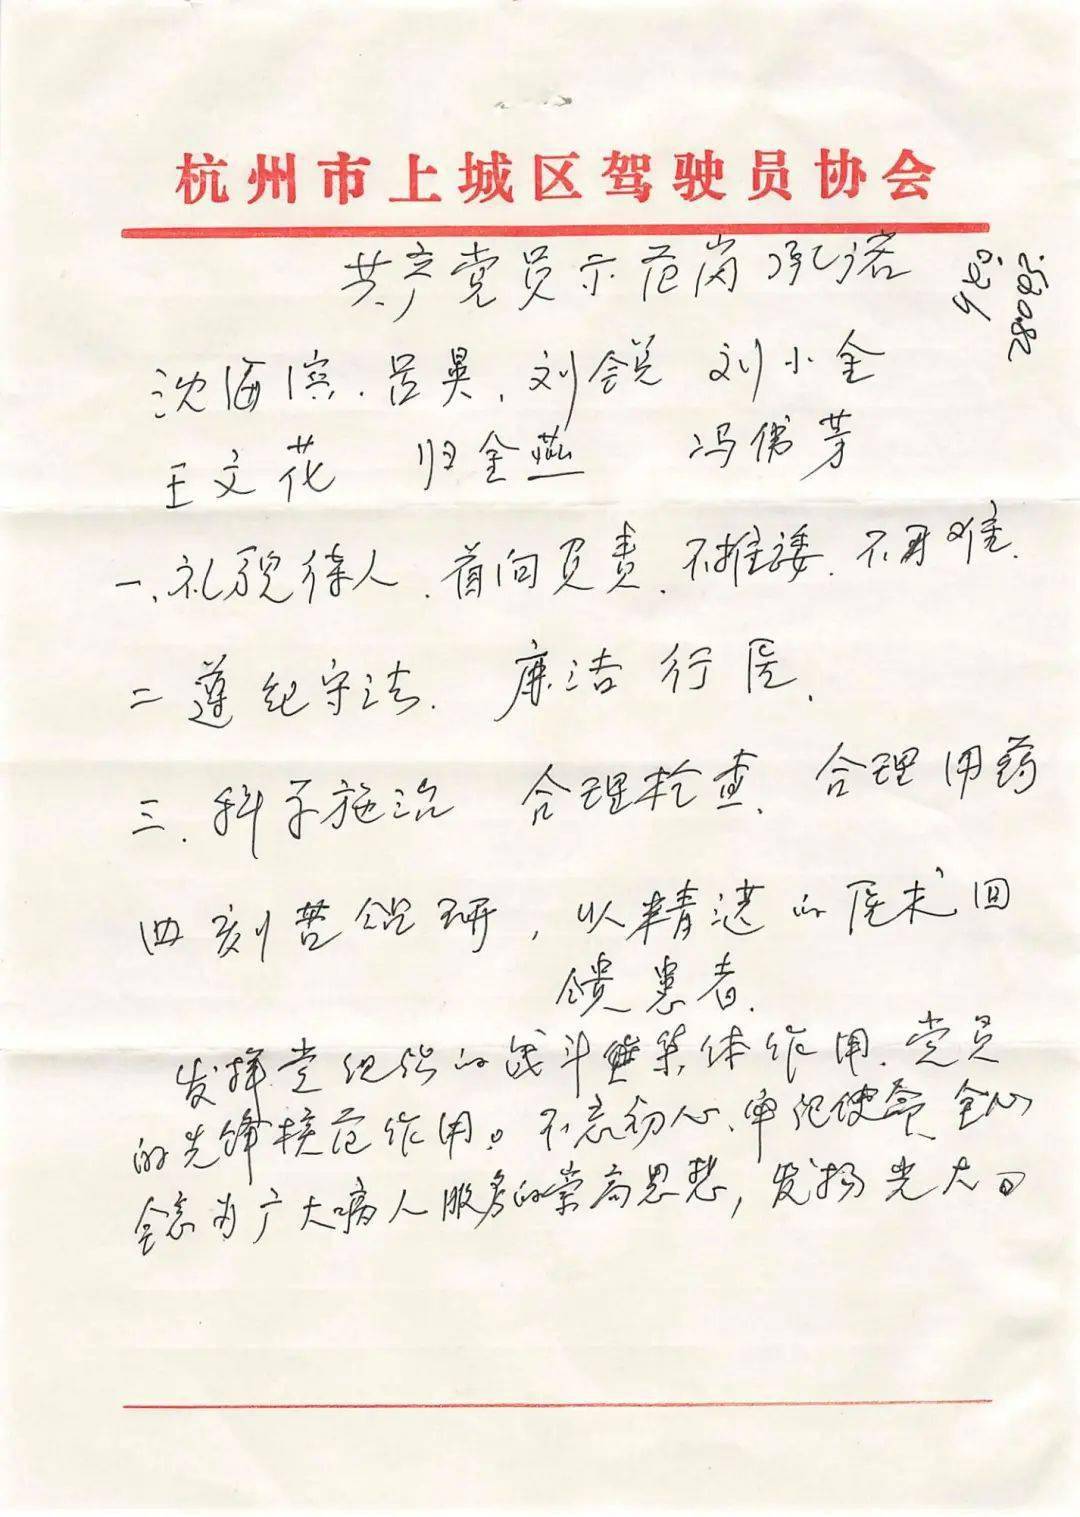 杭州市上城区驾驶员协会
共产党员示范岗承诺
沈海滨、吕昊、刘会悦 刘小全
王文花 归金燕 冯伟芳
一、礼貌待人、首问负责、不推诿、不刁难、
二 遵纪守法、廉洁行医、
三、科学施治 合理检查、合理用药
四 刻苦钻研，以精湛的医术回
馈患者、
发挥党组织的战斗堡垒集体作用、党员
的先锋模范作用。不忘初心、牢记使命、全心
全意为广大病人服务的崇高思想，发扬光大。